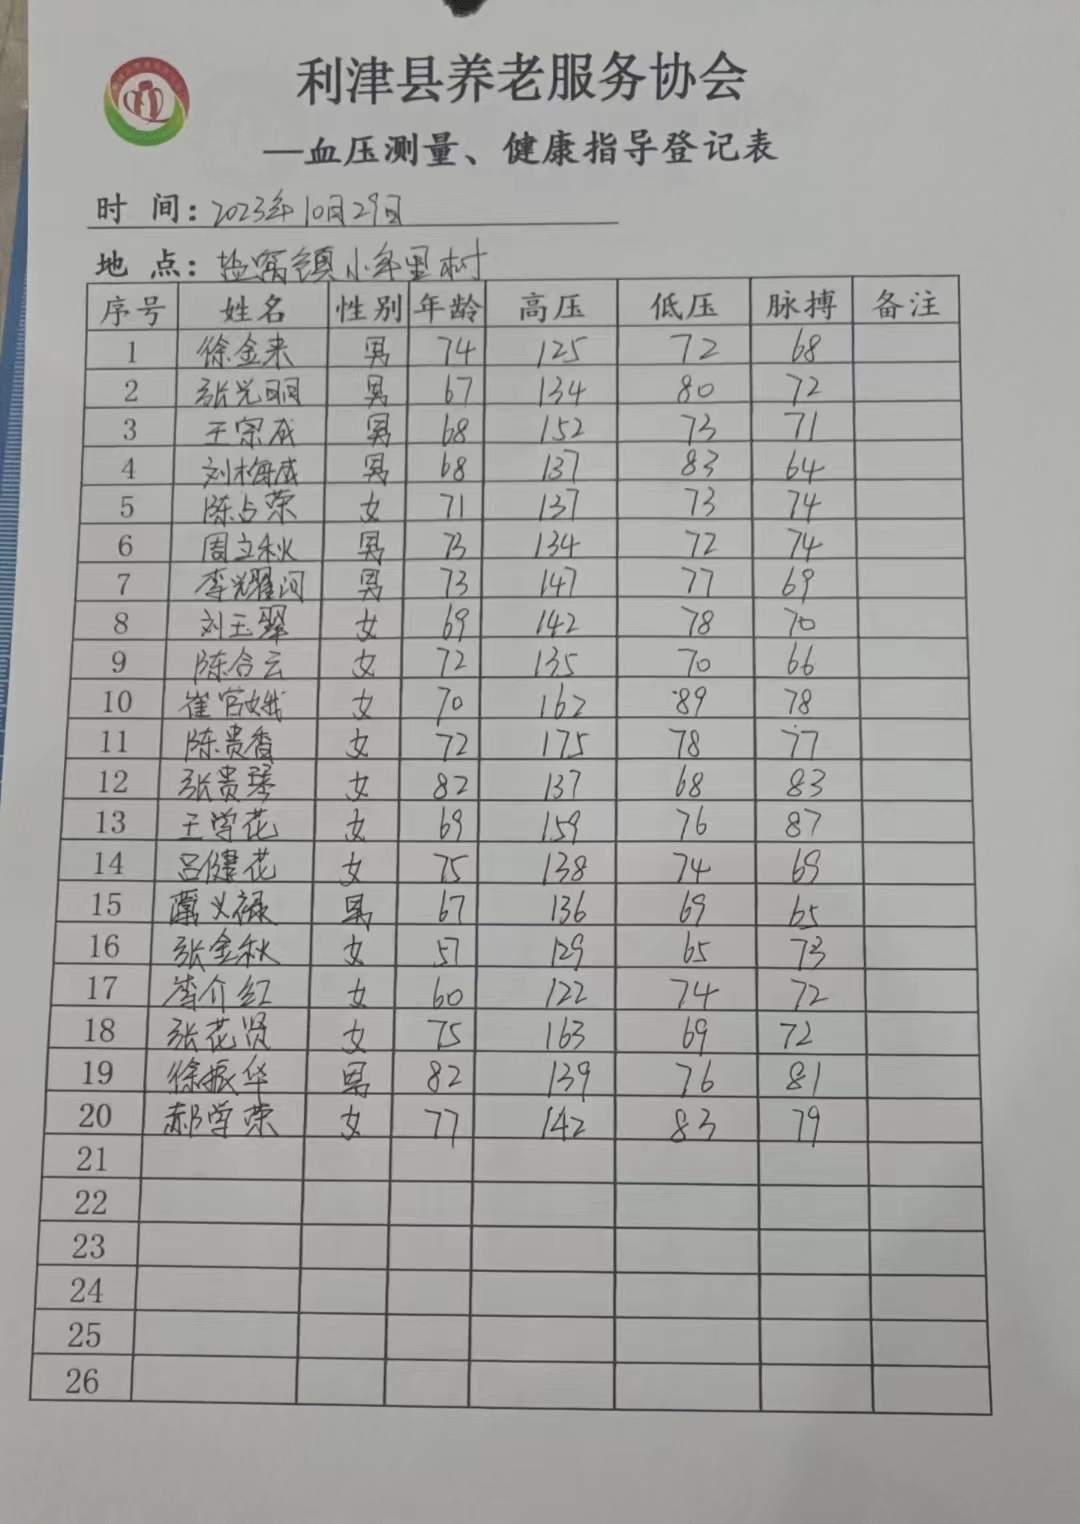 利津县养老服务协会
—血压测量、健康指导登记表
时 间：2023年10月29日
地 点：盐窝镇小牟里村
序号 姓名 性别 年龄 高压 低压 脉搏 备注
1 徐金来 男 74 125 72 68
2 张光明 男 67 134 80 72
3 王宗成 男 68 152 73 71
4 刘梅成 男 68 137 83 64
5 陈占荣 女 71 137 73 74
6 周立秋 男 73 134 72 74
7 李耀河 男 73 147 77 69
8 刘玉翠 女 69 142 78 70
9 陈合云 女 72 135 70 66
10 崔宫娥 女 70 162 89 78
11 陈贵香 女 72 175 78 77
12 张贵琴 女 82 137 68 83
13 王学花 女 69 159 76 87
14 吕健花 女 75 138 74 69
15 义禄 男 67 136 69 65
16 张金秋 女 57 129 65 73
17 李介红 女 60 122 74 72
18 张花贤 女 75 163 69 72
19 徐振华 男 82 139 76 81
20 郝学荣 女 77 142 83 79
21
22
23
24
25
26